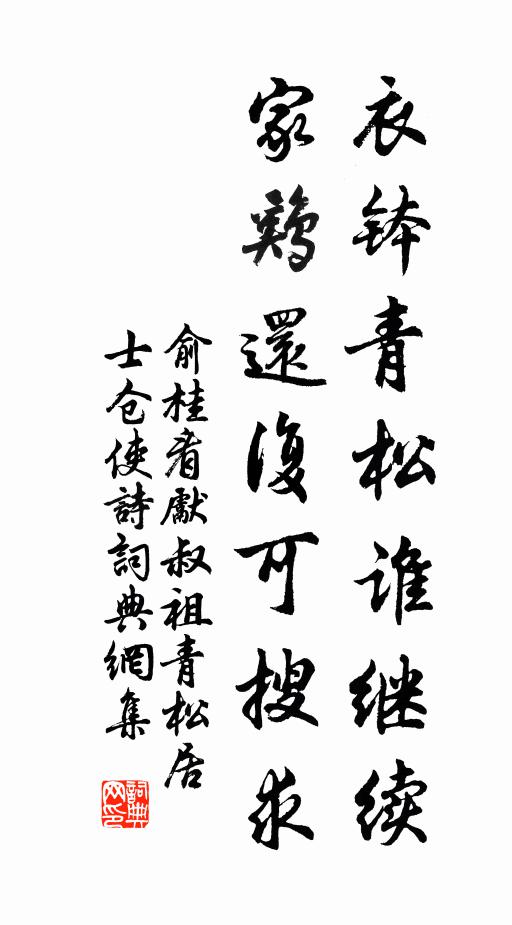 衣钵青松谁继续
家鷄還復可搜求
俞桂者獻叔祖青松居
士仓使詩詞典網集
詞典网印